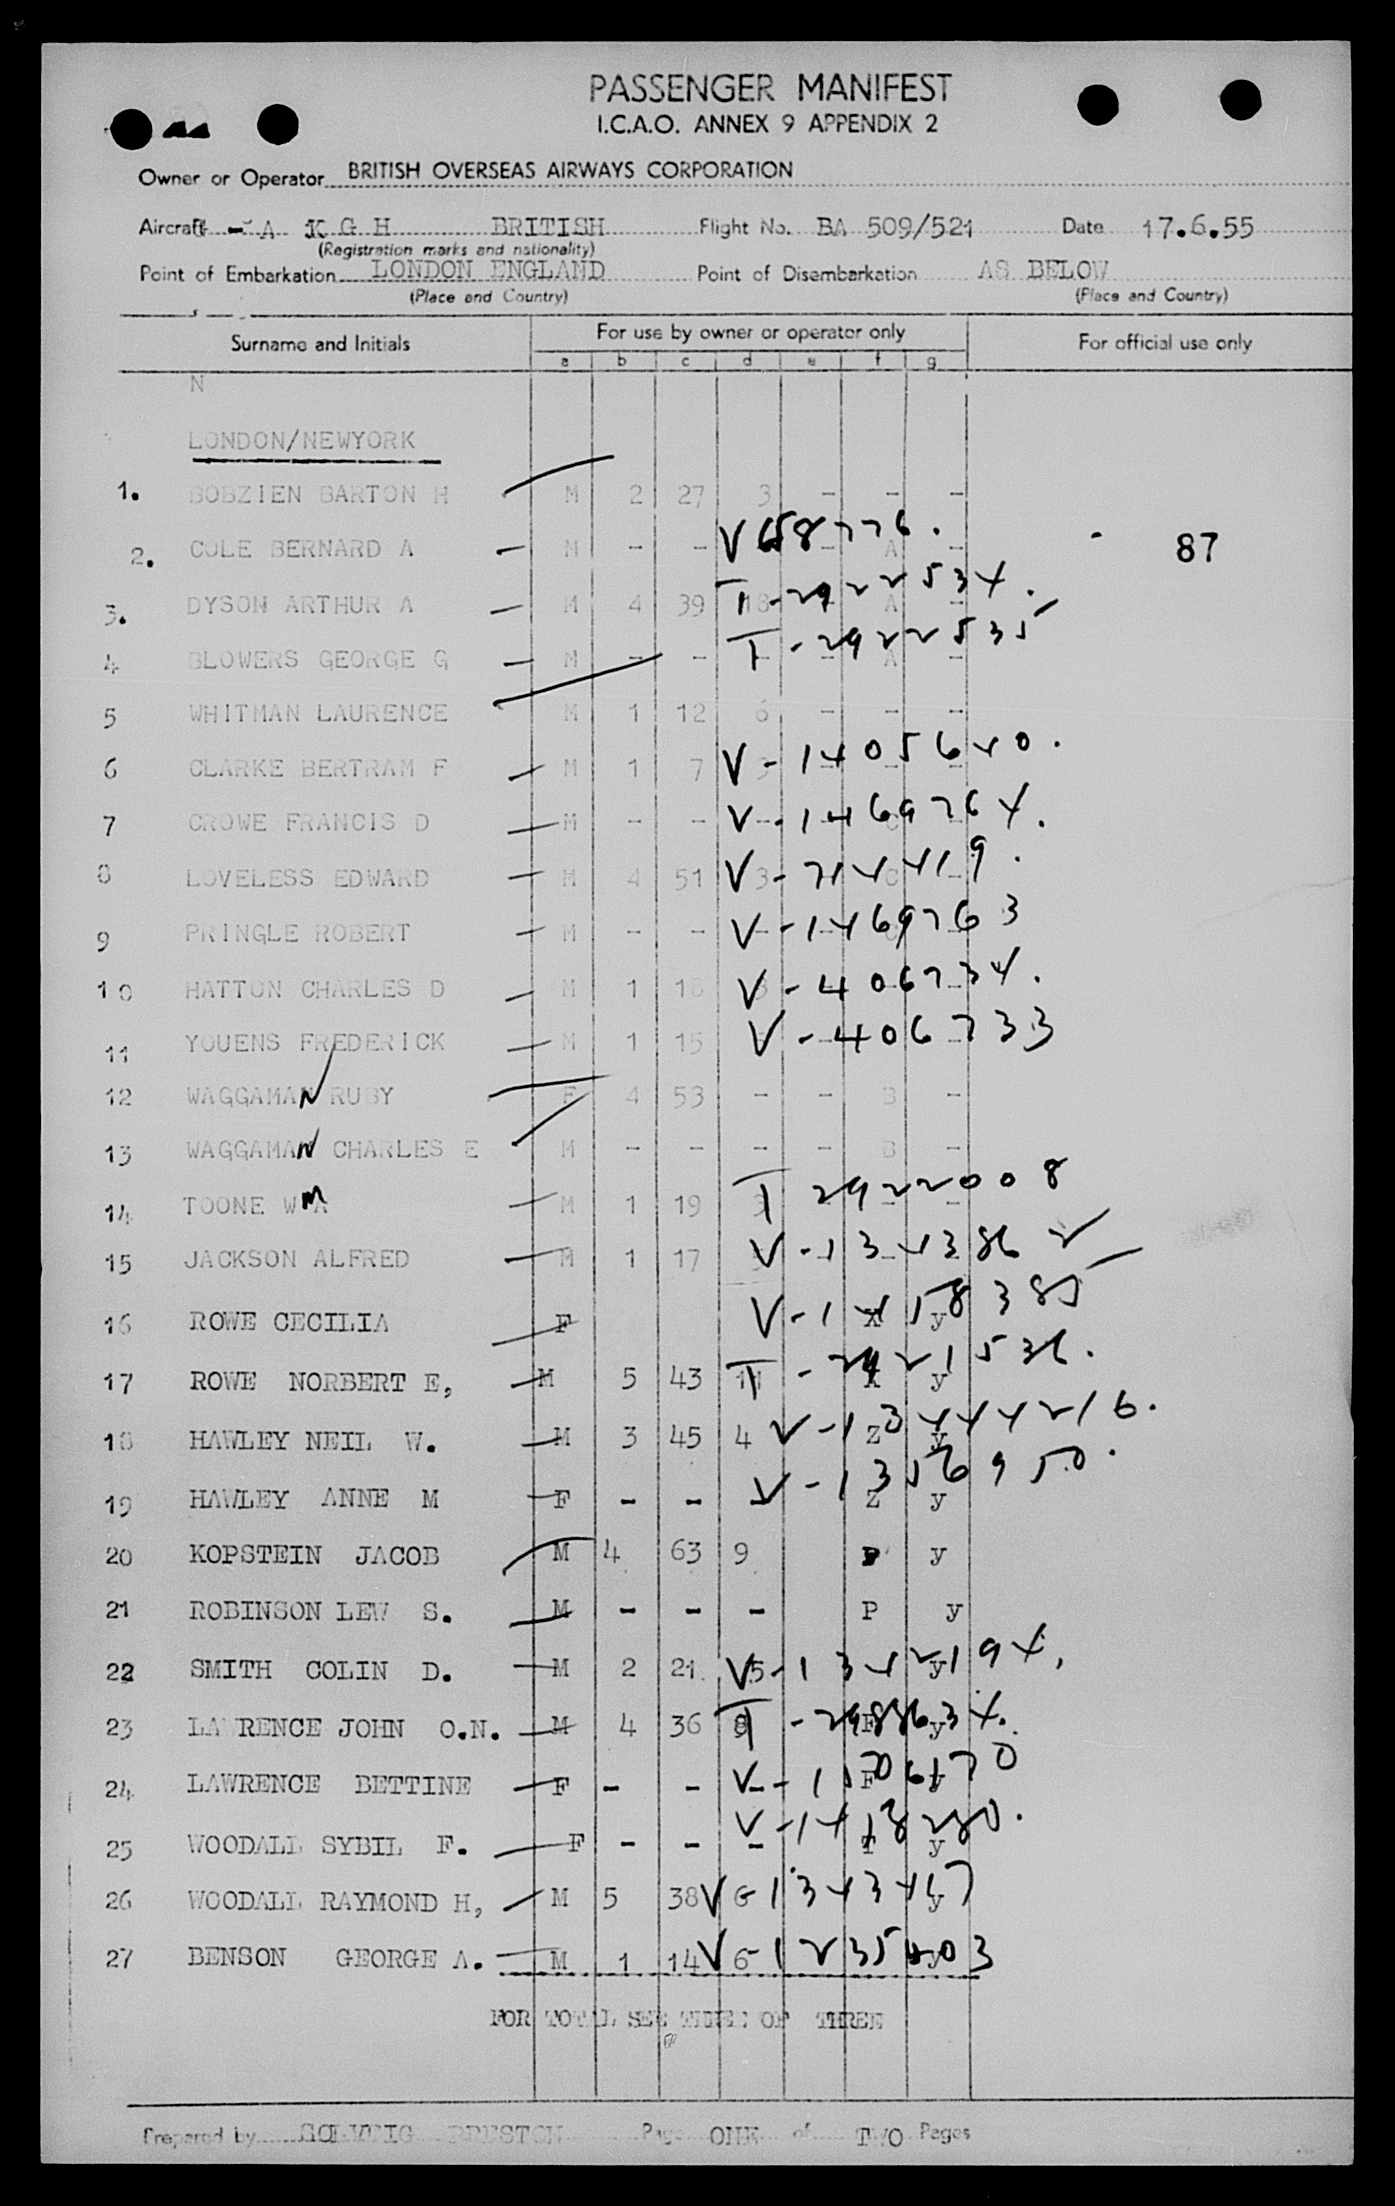 PASSENGER MANIFEST
I.C.A.O. ANNEX 9 APPENDIX 2
Owner or Operator BRITISH OVERSEAS AIRWAYS CORPORATION
Aircraft - A K G H BRITISH Flight No. BA 509/521 Date 17.6.55
(Registration marks and nationality)
Point of Embarkation LONDON ENGLAND Point of Disembarkation AS BELOW
(Place and Country) (Place and Country)
Surname and Initials For use by owner or operator only For official use only
a b c d e f g
N
LONDON/NEWYORK
1. BOBZIEN BARTON H M 2 27 3 - - -
2. COLE BERNARD A - M - - V 658776. A - 87
3. DYSON ARTHUR A - M 4 39 18 T-2922534. A -
4 BLOWERS GEORGE G - M - - T-2922535 A -
5 WHITMAN LAURENCE M 1 12 6 - - -
6 CLARKE BERTRAM F - M 1 7 V-1405640.
7 CROWE FRANCIS D - M - - V-1469764.
8 LOVELESS EDWARD - M 4 51 3 V-714419.
9 PRINGLE ROBERT - M - - V-1469763
10 HATTON CHARLES D - M 1 18 V-406734.
11 YOUENS FREDERICK - M 1 15 V-406733
12 WAGGAMAN RUBY F 4 53 - - B -
13 WAGGAMAN CHARLES E M - - - - B -
14 TOONE WM - M 1 19 T 2922008
15 JACKSON ALFRED - M 1 17 V-134386
16 ROWE CECILIA - F V-1458385 X y
17 ROWE NORBERT E, - M 5 43 11 T-2921536. X y
18 HAWLEY NEIL W. - M 3 45 4 V-13444216. Z y
19 HAWLEY ANNE M - F - - - V-1356950. Z y
20 KOPSTEIN JACOB M 4 63 9 P y
21 ROBINSON LEW S. - M - - - P y
22 SMITH COLIN D. - M 2 21 5 V-1342194. y
23 LAWRENCE JOHN O.N. - M 4 36 8 T-2988634. F y
24 LAWRENCE BETTINE - F - - - F
25 WOODALL SYBIL F. - F - - - V-1418280. y
26 WOODALL RAYMOND H, - M 5 38 6 V-1343457 y
27 BENSON GEORGE A. - M 1 14 6 V-1235403
FOR TOTAL SEE THREE OF THREE
Prepared by SOLVEIG PRESTON Page ONE of TWO Pages